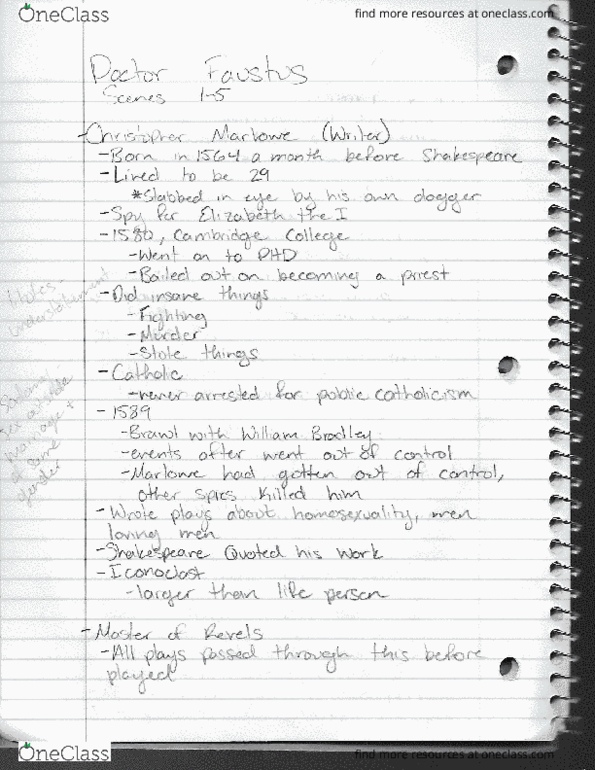 OneClass
find more resources at oneclass.com
Doctor Faustus
Scenes 1-5
-Christopher Marlowe (Writer)
-Born in 1564 a month before Shakespeare
-Lived to be 29
*Stabbed in eye by his own dagger
-Spy for Elizabeth the I
-1580, Cambridge College
-Went on to PHD
-Bailed out on becoming a priest
-Did insane things
-Fighting
-Murder
-Stole things
-Catholic
-never arrested for public catholicism
-1589
-Brawl with William Bradley
-events after went out of control
-Marlowe had gotten out of control,
other spies killed him
-Wrote plays about homosexuality, men
loving men
-Shakespeare Quoted his work
-Iconoclast
-larger than life person
-Master of Revels
-All plays passed through this before
played
understatement
sex outside
marriage +
of same
gender
OneClass
find more resources at oneclass.com